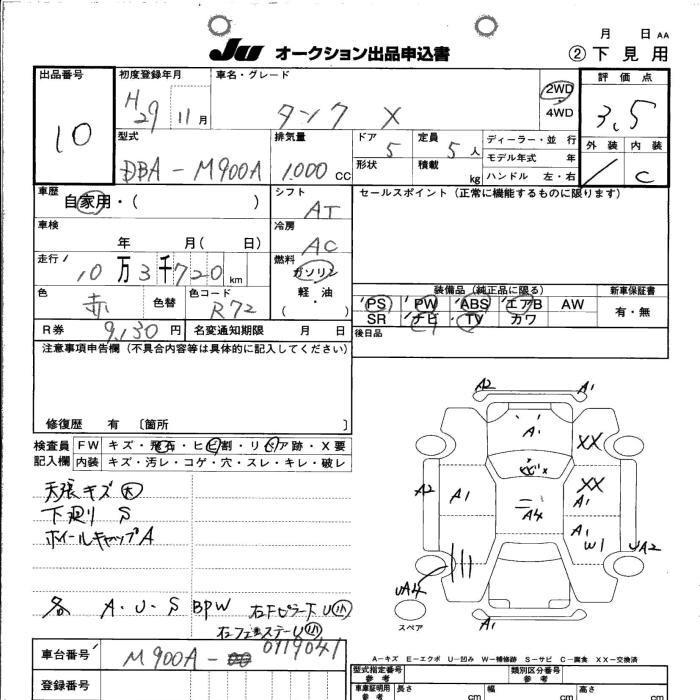 月 日 AA
JU オークション出品申込書 ②下見用
出品番号 初度登録年月 車名・グレード 2WD 4WD 評価点
10 H29 11月 タンク X 3.5
型式 排気量 ドア 5 定員 5人 ディーラー・並行 外装 内装
DBA-M900A 1,000 CC 形状 積載 kg モデル年式 年 C
ハンドル 左・右
車歴 自家用・( ) シフト AT セールスポイント(正常に機能するものに限ります)
車検 年 月( 日) 冷房 AC
走行 10万3千720 km 燃料 ガソリン 軽・油 ( )
色 赤 色替 色コード R72
装備品(純正品に限る) 新車保証書
PS PW ABS エアB AW 有・無
SR ナビ TV カワ
R券 9,130円 名変通知期限 月 日 後日品
注意事項申告欄(不具合内容等は具体的に記入してください)
修復歴 有 〔箇所 〕
検査員記入欄 FW キズ・飛石・ヒビ割・リペア跡・X要
内装 キズ・汚レ・コゲ・穴・スレ・キレ・破レ
天張キズ大
下廻り S
ホイールキャップA
各 A・U・S BPW
A2 A1
A1 XX
XX
A2 A1 A1
A4
A1 W1 UA2
UA4
スペア A1
A−キズ E−エクボ U−凹み W−補修跡 S−サビ C−腐食 XX−交換済
車台番号 M900A-0119041
登録番号
型式指定番号 参考 類別区分番号 参考
車庫証明用 参考 長さ cm 幅 cm 高さ cm